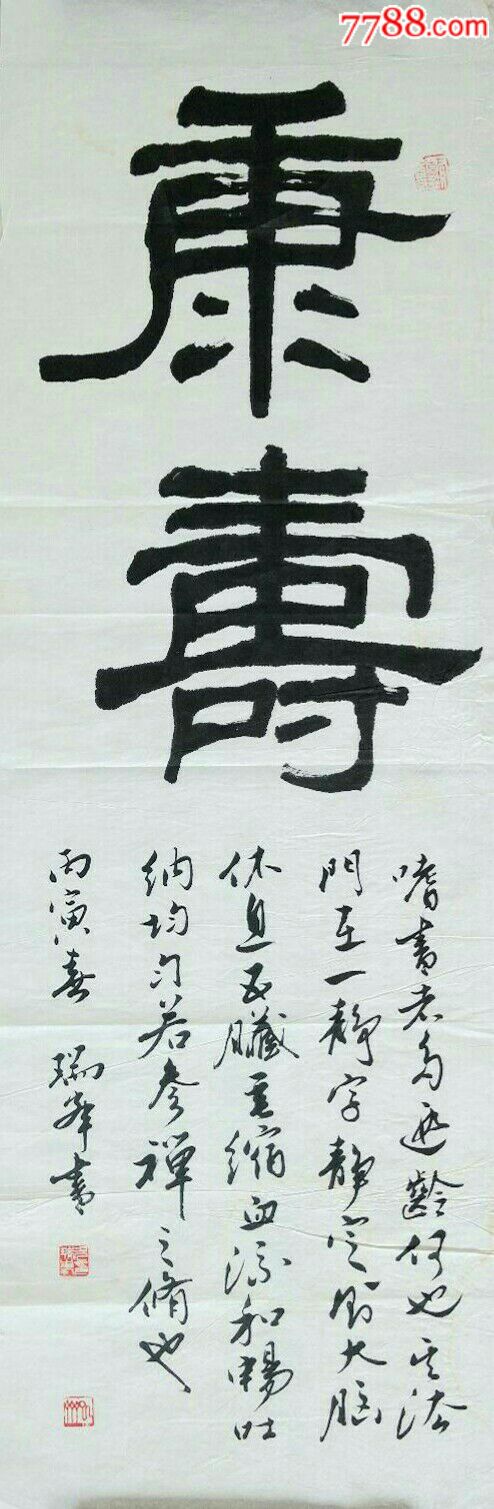 7788.com
康
壽
嗜書者多遐齡何也其法
門在一靜字靜定則大腦
休息五臟重縮血流和暢吐
納均匀若參禪之脩也
丙寅春 瑞華書